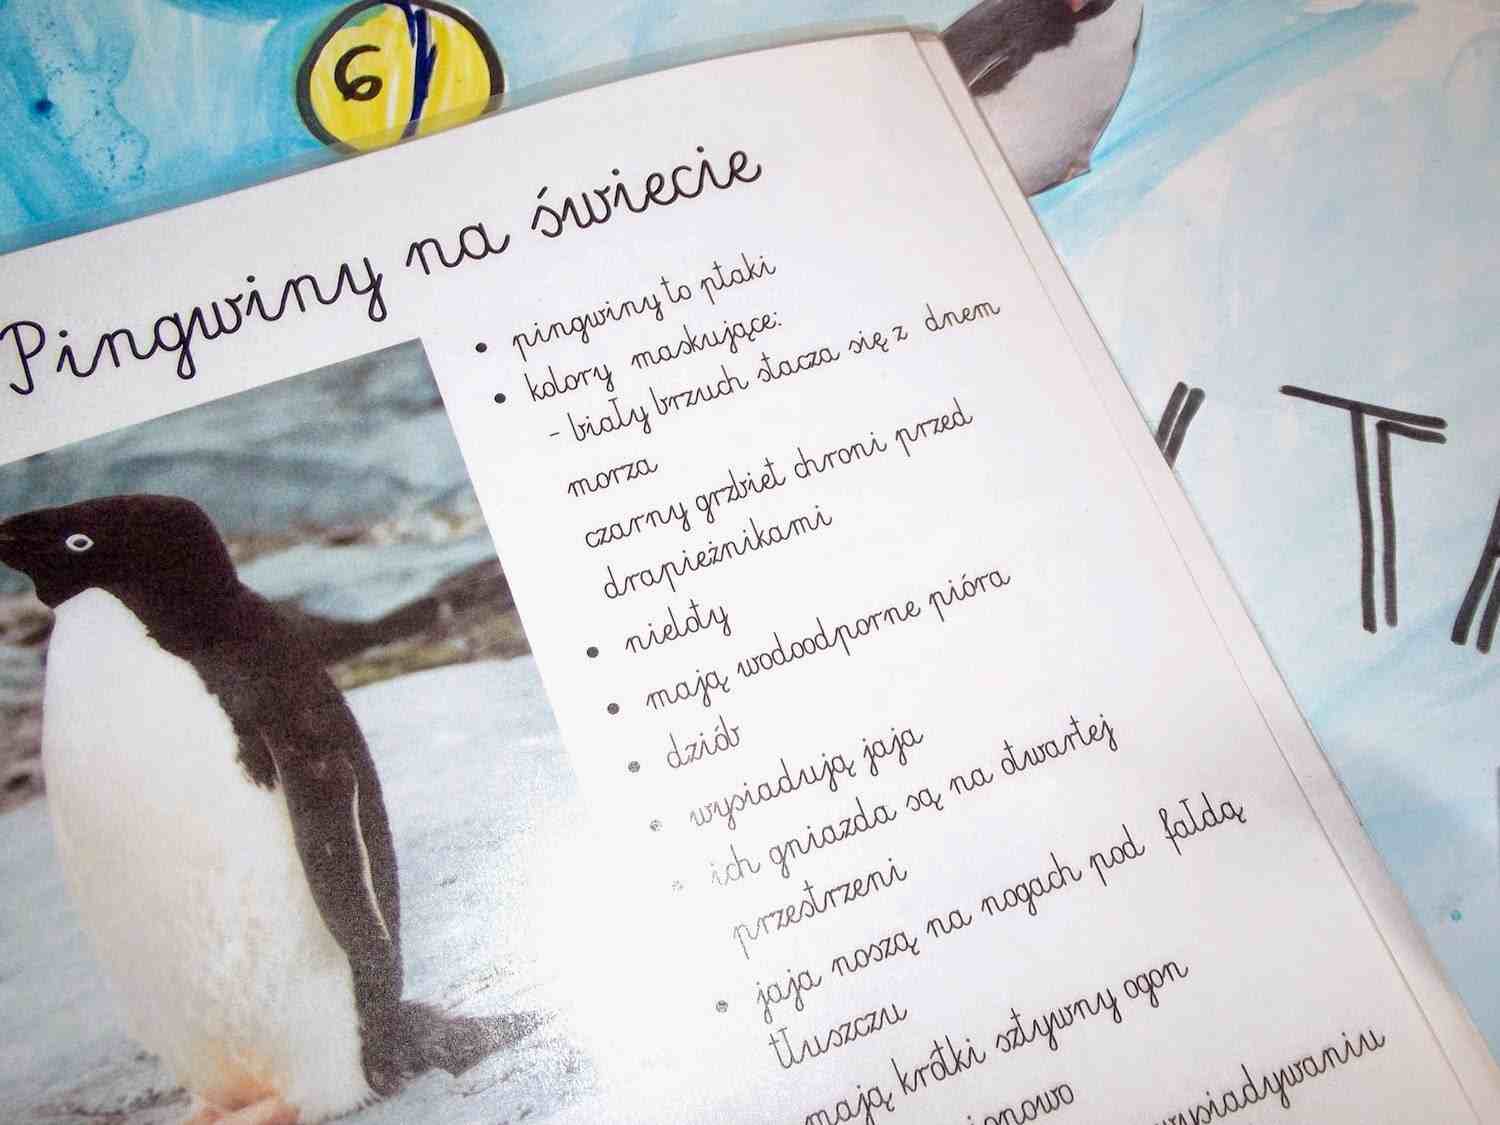 6
Pingwiny na świecie
pingwiny to ptaki
kolory maskujące:
- biały brzuch stacza się z dnem
morza
czarny grzbiet chroni przed
drapieżnikami
nieloty
mają wodoodporne pióra
dziób
wysiadują jaja
ich gniazda są na otwartej
przestrzeni
jaja noszą na nogach pod fałdą
tłuszczu
mają krótki sztywny ogon
wysiadywaniu
T